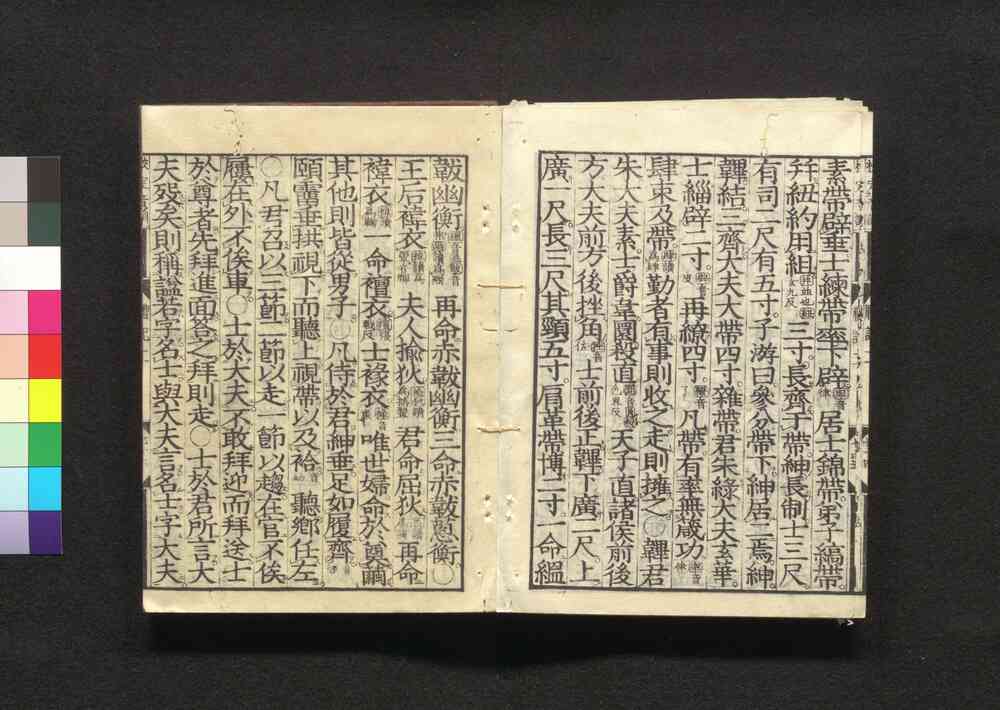 素帶辟垂士練帶率下辟居士錦帶。弟子縞帶
幷紐約用組三寸。長齊于帶。紳長制士三尺
有司二尺有五寸。子游曰參分帶下紳居二焉紳
韠結三齊大夫大帶四寸。雜帶君朱綠大夫玄華
士緇辟二寸。再繚四寸。凡帶有率無箴功
肆束及帶勤者有事則收之走則擁之○韠君
朱大夫素士爵韋圜殺直天子直諸侯前後
方大夫前方後挫角士前後正韠下廣二尺。上
廣一尺。長三尺其頸五寸。肩革帶博二寸一命縕
韍幽衡再命赤韍幽衡三命赤韍葱衡○
王后褘衣夫人揄狄君命屈狄再命
褘衣一命襢衣士褖衣唯世婦命於奠繭
其他則皆從男子○凡侍於君紳垂足如履齊
頤霤垂拱視下而聽上視帶以及袷聽鄉任左
○凡君召以三節二節以走一節以趨在官不俟
屨在外不俟車○士於大夫不敢拜迎而拜送士
於尊者先拜進面答之拜則走○士於君所言大
夫歿矣則稱謚若字名士與大夫言名士字大夫